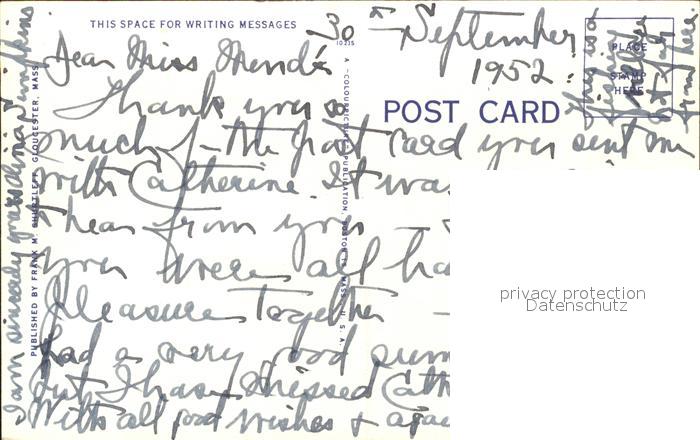 THIS SPACE FOR WRITING MESSAGES
30 September
1952.
Dear Miss Mende
Thank you so
much for the post card you sent me
with Catherine. It was
hear from you
you were all ha
pleasure together
had a very good summ
but I have missed Cath
With all good wishes & agai
I am sincerely yours
POST CARD
PLACE
STAMP
HERE
This is a
from here.
10235
A "COLOURPICTURE" PUBLICATION, BOSTON 15, MASS., U. S. A.
PUBLISHED BY FRANK M. SHURTLEFF, GLOUCESTER, MASS.
privacy protection
Datenschutz